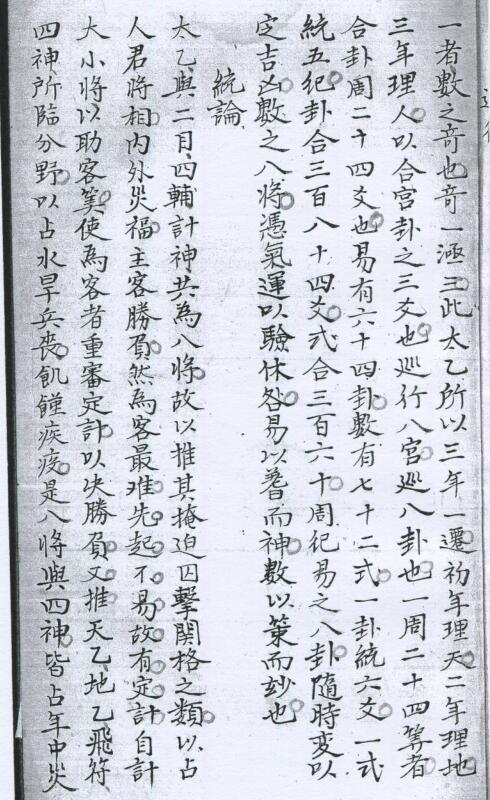 一者數之奇也奇一函三此太乙所以三年一遷初年理天二年理地
三年理人以合宮卦之三爻也巡行八宮巡八卦也一周二十四筭者
合卦周二十四爻也易有六十四卦數有七十二式一卦統六爻一式
統五纪卦合三百八十四爻式合三百六十周纪易之八卦隨時変以
定吉凶數之八將憑氣運以驗休咎易以蓍而神数以策而玅也
統論
太乙與二目四輔計神共為八將故以推其掩迫囚擊関格之類以占
人君將相内外災福主客勝負然為客最难先起不易故有定計自計
大小將以助客筭使為客者重審定計以决勝負又推天乙地乙飛符
四神所臨分野以占水旱兵喪飢饉疾疫是八將與四神皆占年中災